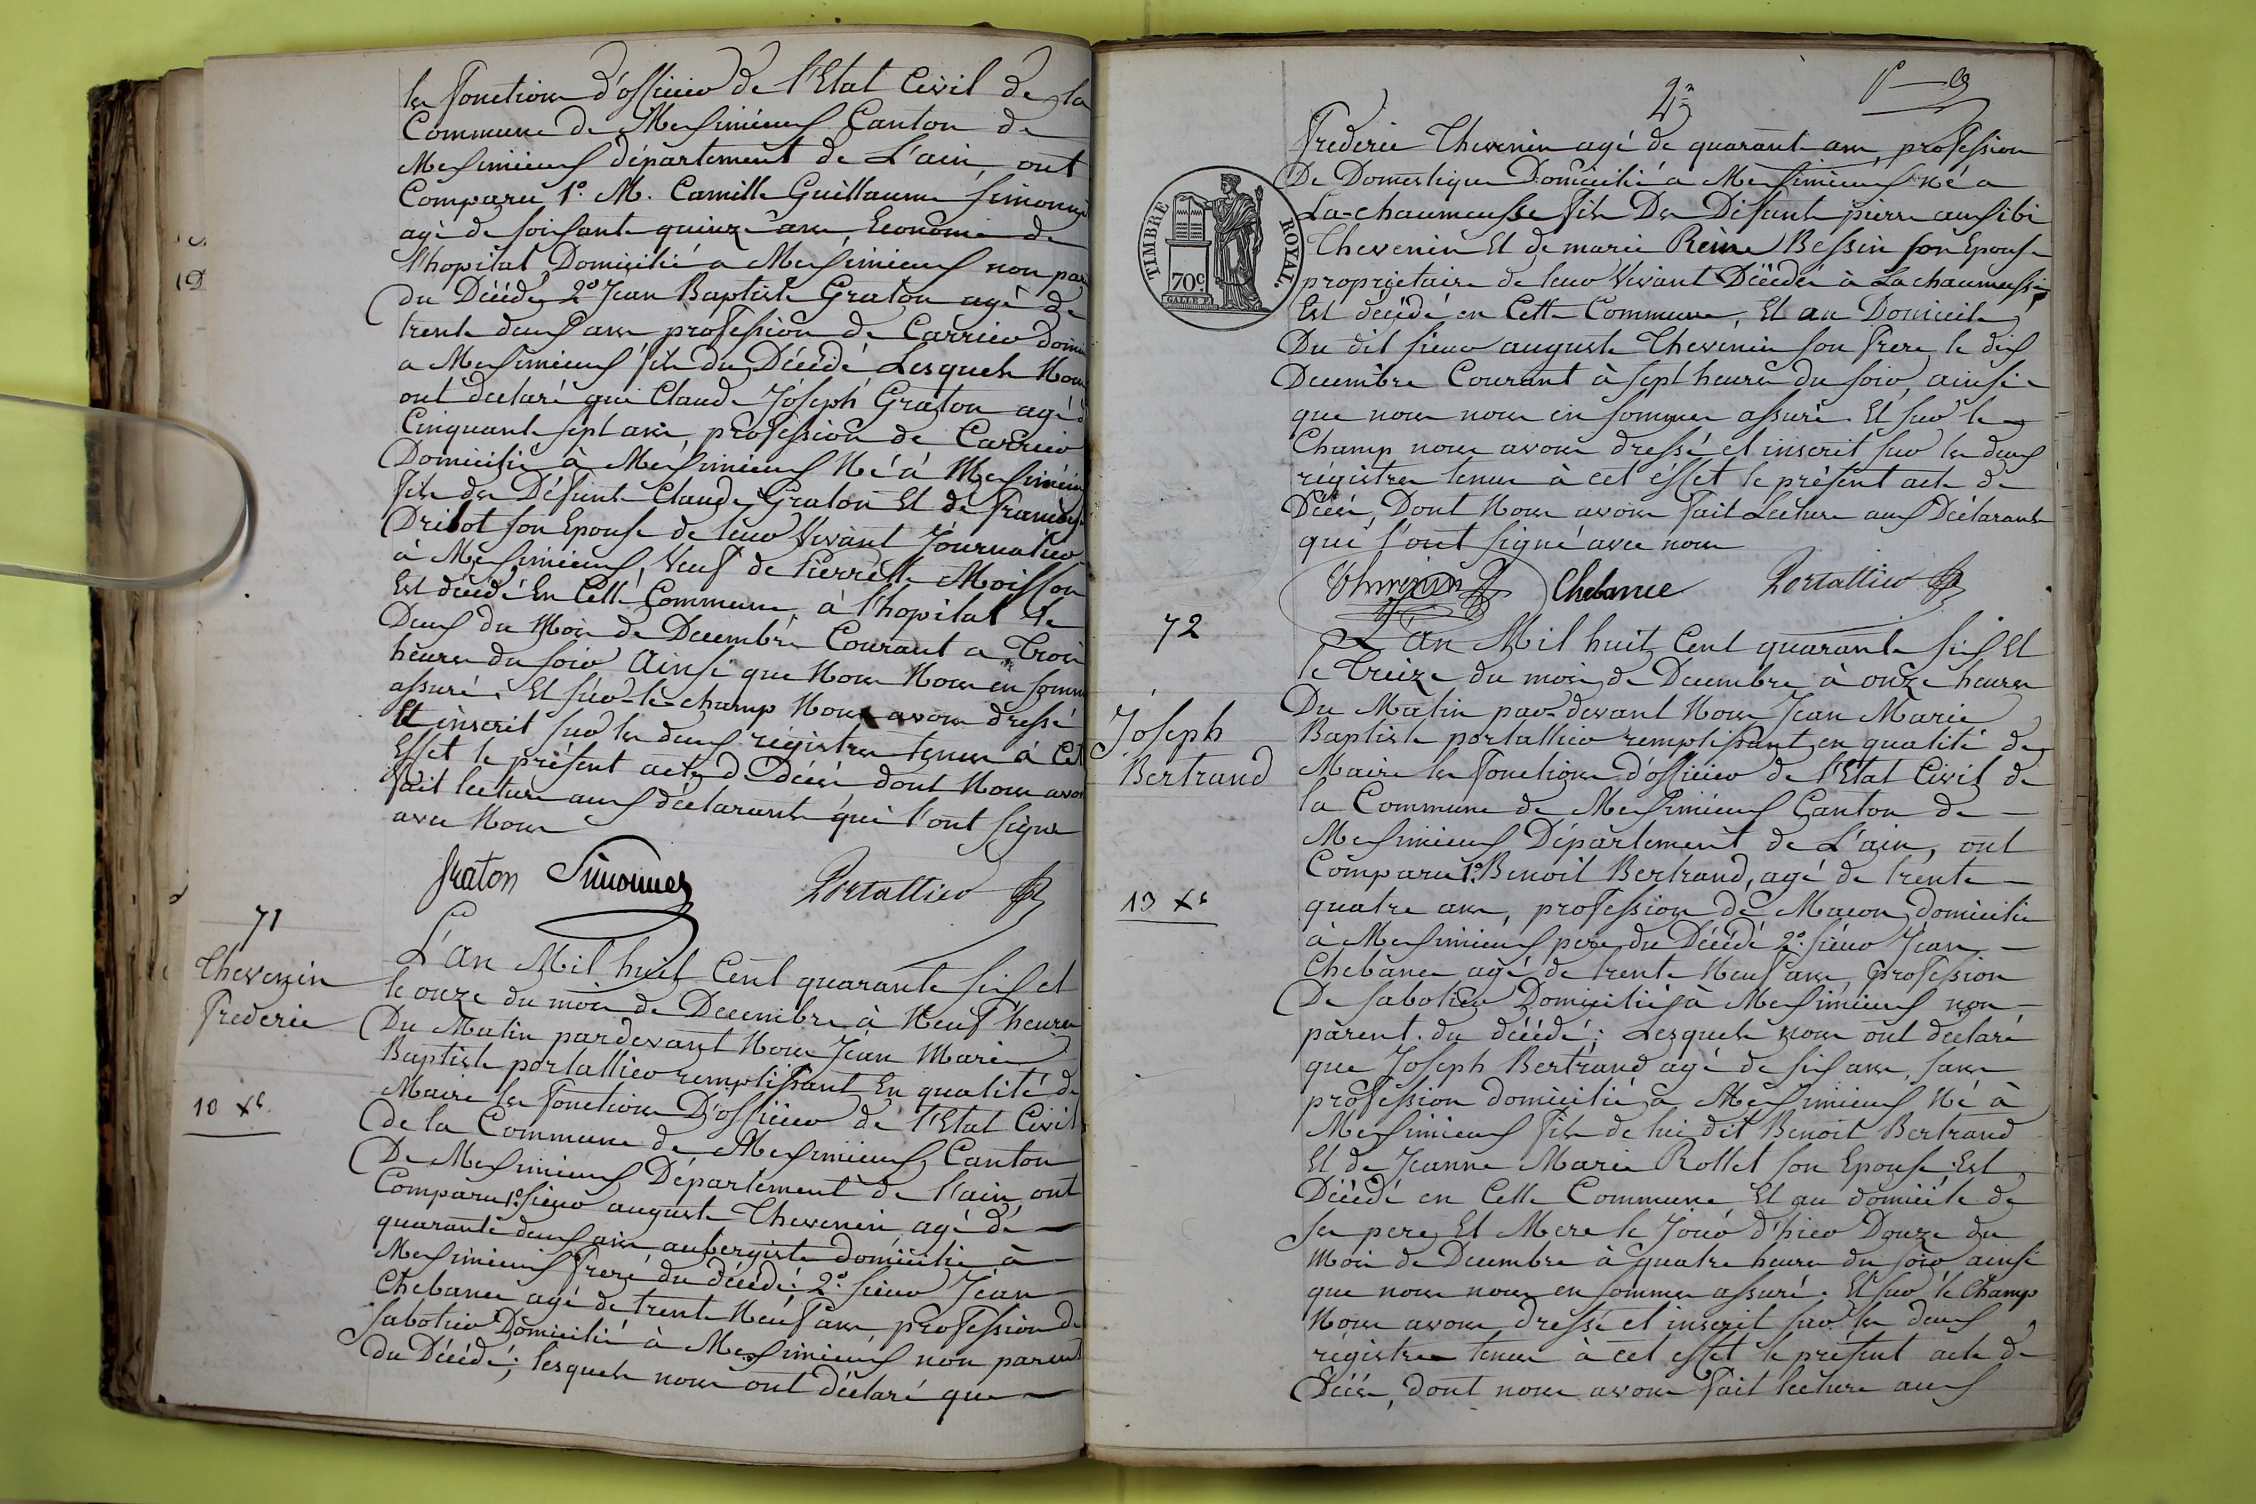 les fonctions d'officier de l'Etat Civil de la
Commune de Meximieux Canton de
Meximieux département de L'ain, ont
Comparu 1º. M. Camille Guillaume Simonnet
agé de soixante quinze ans, Econome de
l'hopital Domicilié a Meximieux non par
du Décédé, 2º Jean Baptiste Graton agé de
trente deux ans profession de Carrier domi
a Meximieux fils du Décédé Lesquels Nous
ont declaré que Claude Joseph Graton agé d
Cinquante sept ans, profession de Carrier
Domicilié à Meximieux Né à Meximieu
fils des Défunts Claude Graton Et de Françoise
son Epouse de leur Vivant Journalier
à Meximieux, Veuf de Pierrette Moisson
Est décédé En Cette Commune, à l'hopital le
Deux du Mois de Decembre Courant a Trois
heures du soir Ainsi que Nous Nous en somm
assuré. Et sur-le-champ Nous avons dressé
Et inscrit sur les deux régistres tenus à Cet
Effet le présent acte de décès dont Nous avon
fait lecture aux déclarants qui l'ont signé
avec Nous
Graton Simonnet Portallier
71
Thevenin
Frederic
10 Xe.
L'an Mil huit Cent quarante six et
le onze du mois de Decembre à Neuf heures
Du Matin pardevant Nous Jean Marie
Baptiste portallier remplissant En qualité de
Maire les fonctions D'officier de l'Etat Civil
de la Commune de Meximieux Canton
De Meximieux Département de l'ain, ont
Comparu 1º. sieur auguste Thevenin, agé de
quarante deux ans aubergiste domicilié à
Meximieux frere du décédé; 2º. sieur Jean
Chebance agé de trente Neuf ans, profession de
sabotier Domicilié à Meximieux non parent
du Décédé; lesquels nous ont déclaré que
Frederic Thevenin agé de quarante ans, profession
De Domestique Domicilié a Meximieux Né a
La-chaumeusse fils Des Defunts pierre
Thevenin Et de marie Reine Bessin son Epouse
proprietaire de leur Vivant Décédés à La chaumusse,
Est décédé en Cette Commune, Et au Domicile
Du dit sieur auguste Thevenin son frere le dix
Decembre Courant à sept heures du soir, ainsi
que nous nous en sommes assuré. Et sur le
Champ nous avons dressé et inscrit sur les deux
régistres tenus à cet effet le présent acte de
Décès, Dont Nous avons fait Lecture aux Déclarants
qui l'ont signé avec nous
Thevenin Chebance Portallier
TIMBRE ROYAL
70c.
72
Joseph
Bertrand
13 Xe
L'an Mil huit Cent quarante six Et
le treize du mois de Decembre à onze heures
Du Matin par-devant Nous Jean Marie
Baptiste portallier remplissant en qualité de
Maire les fonctions d'officier de l'Etat Civil de
la Commune de Meximieux Canton de
Meximieux Département de L'ain, ont
Comparu 1º. Benoit Bertrand, agé de trente
quatre ans, profession de Macon domicilié
à Meximieux pere du Décédé 2º. sieur Jean
Chebance agé de trente Neuf ans, profession
De sabotier Domicilié à Meximieux non
parent. du décédé; Lesquels nous ont déclaré
que Joseph Bertrand agé de six ans, sans
profession domicilié à Meximieux Né à
Meximieux fils de lui dit Benoit Bertrand
Et de Jeanne Marie Rollet son Epouse. Est
Décédé en Cette Commune Et au domicile de
ses pere Et Mere le Jour d'hier Douze du
Mois de Decembre à quatre heures du soir ainsi
que nous nous en sommes assuré. Et sur le Champ
Nous avons dressé et inscrit sur les deux
régistres tenus à cet effet le présent acte de
Décès, dont nous avons fait lecture aux